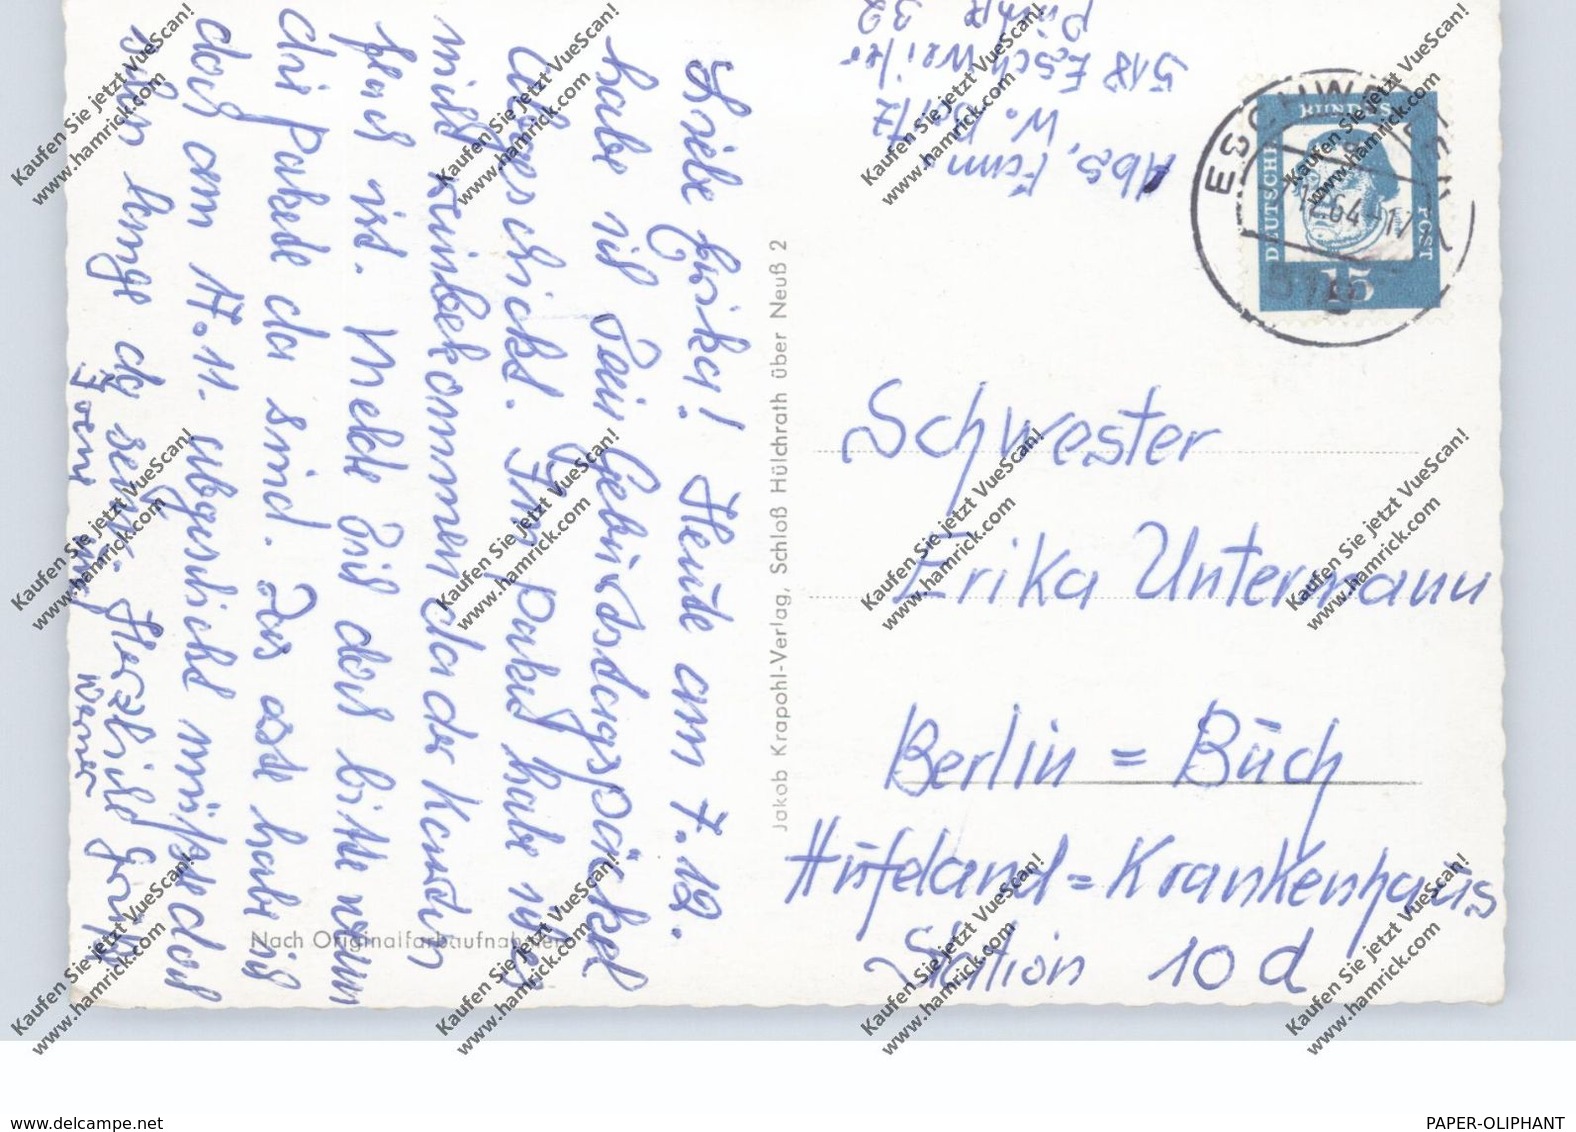 Liebe Erika! Heute am 7.12.
habe ich Dein Geburtstagspäckel
abgeschickt. Ein Paket habe ich
mit reinbekommen da der Karton
schon ist. Melde Dich doch bitte wenn
die Pakete da sind. Das erste habe ich
doch am 17.11. abgeschickt müßte doch
schon lange da sein. Herzlich grüßt
Werner
Jakob Krapohl-Verlag, Schloß Hülchrath über Neuß 2
Nach Originalfarbaufnahmen
Abs. Fam.
W. Bartz
518 Eschweiler
32
DEUTSCHE
BUNDES
POST
15
ESCHWEILER
7.12.64-17
Schwester
Erika Untermann
Berlin = Buch
Hufeland = Krankenhaus
Station 10 d
Kaufen Sie jetzt VueScan!
www.hamrick.com
www.delcampe.net
PAPER-OLIPHANT